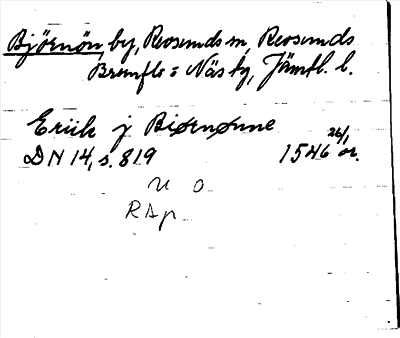 Bjørnön, by, Revsunds sn, Revsunds
Brunflo o Näs tg, Jämtl. l.
Eriik j Biørnønne
DN 14, s. 819 1546 26/1 or.
u o
RAp